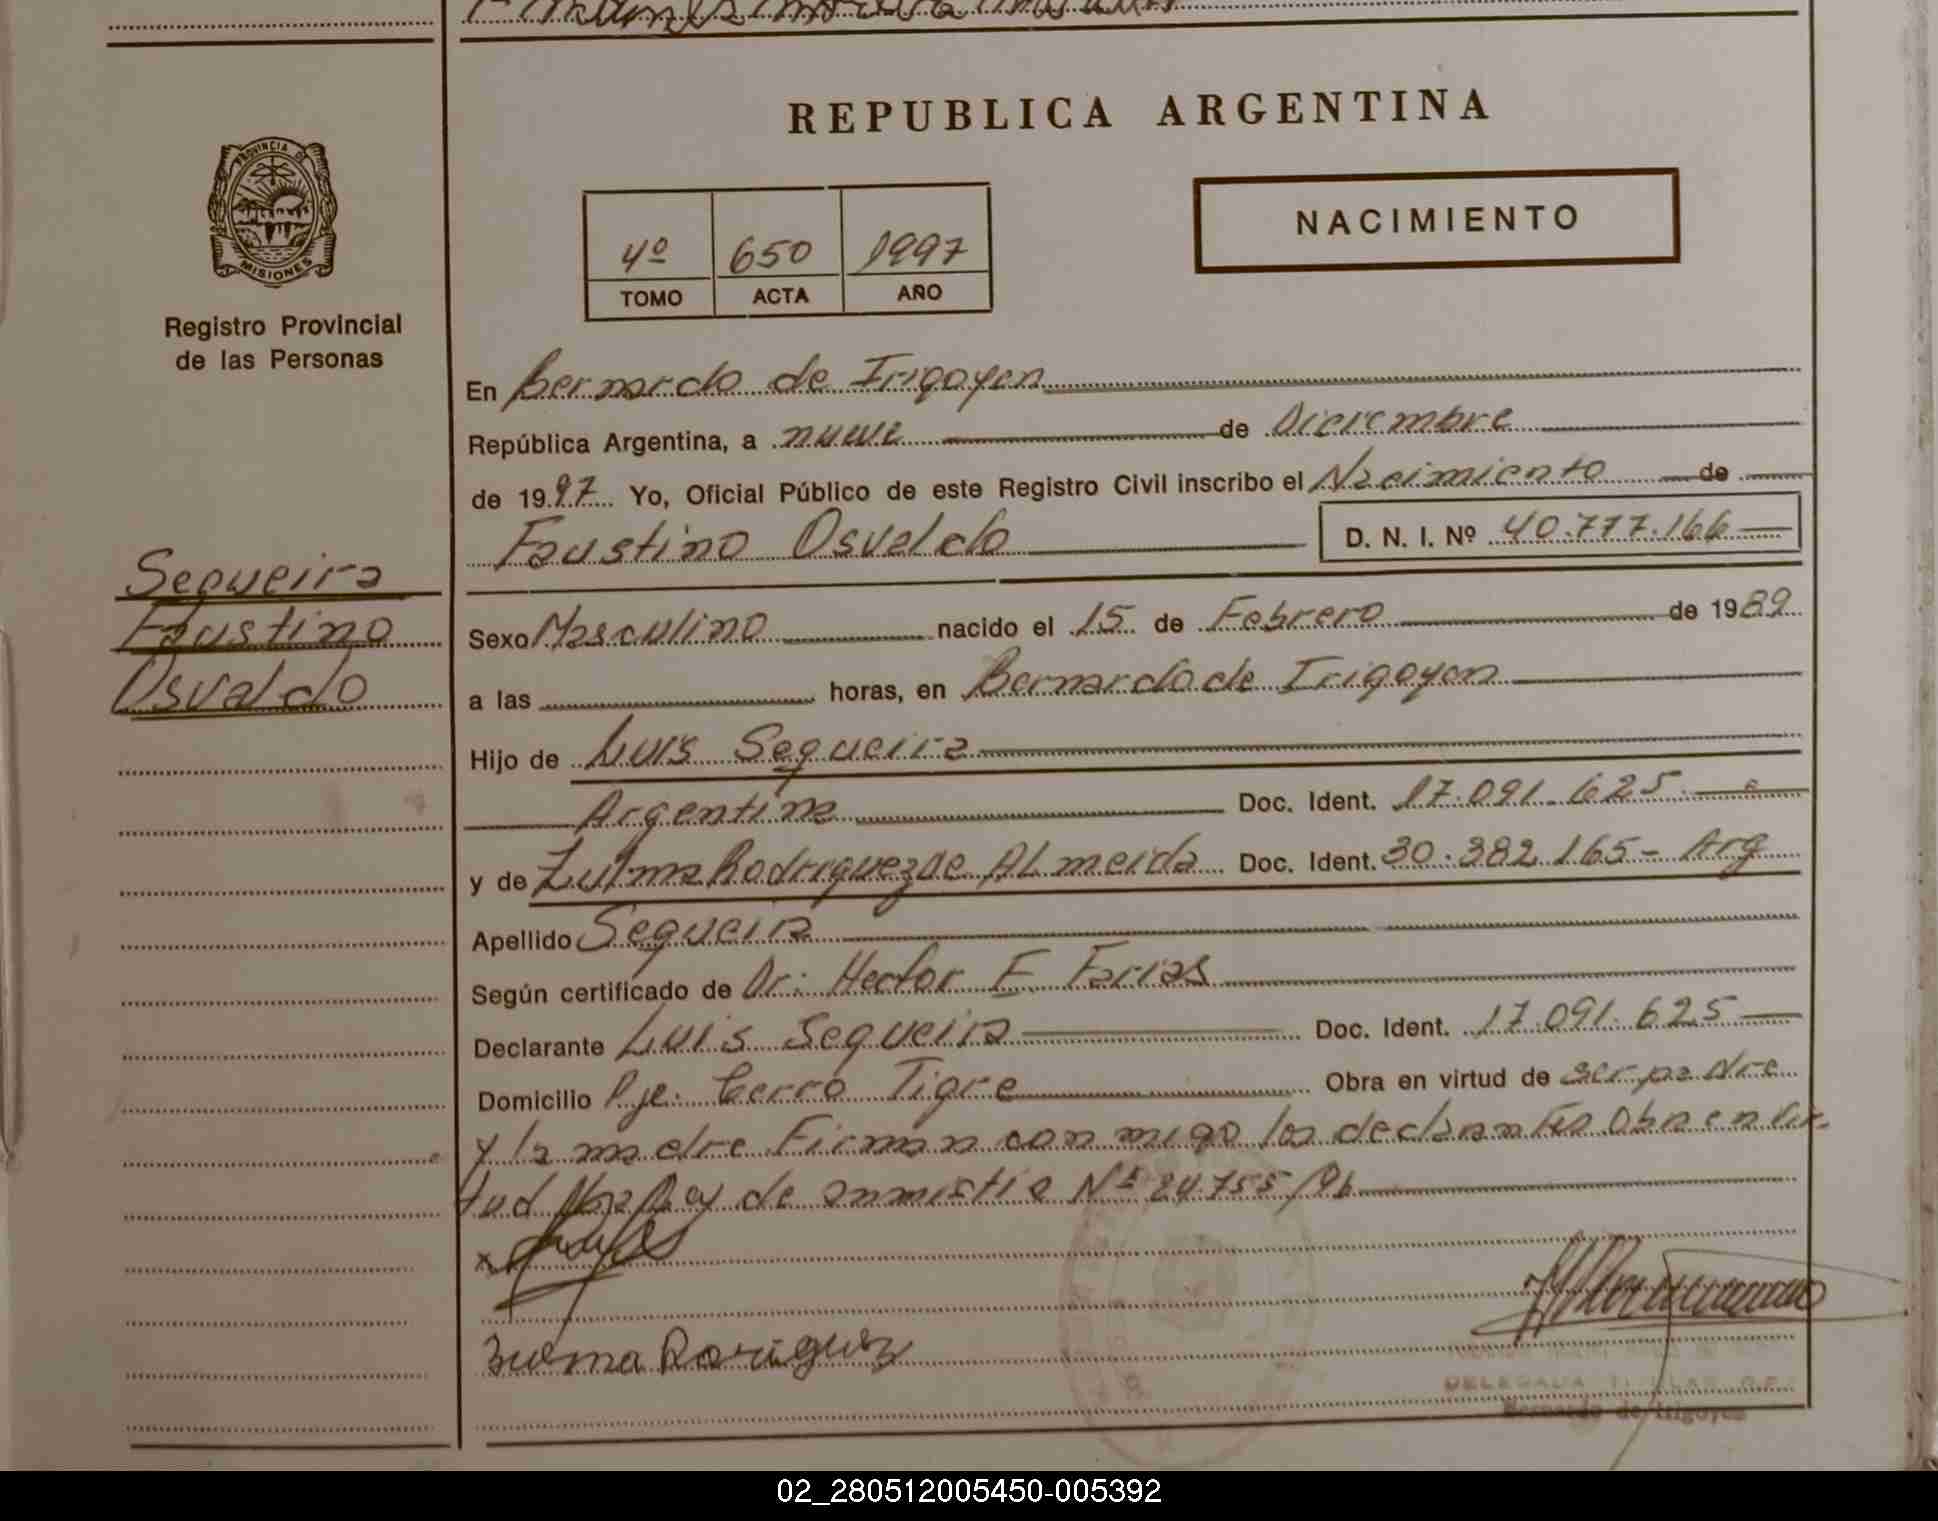 REPUBLICA ARGENTINA
PROVINCIA DE
MISIONES
Registro Provincial
de las Personas
4º 650 1997
TOMO ACTA AÑO
NACIMIENTO
En Bernardo de Irigoyen
República Argentina, a nueve de Diciembre
de 1997 Yo, Oficial Público de este Registro Civil inscribo el Nacimiento de
Faustino Osvaldo D. N. I. Nº 40.777.166
Sequeira
Faustino
Osvaldo
Sexo Masculino nacido el 15 de Febrero de 1989
a las horas, en Bernardo de Irigoyen
Hijo de Luis Sequeira
Argentina Doc. Ident. 17.091.625
y de Zulma Rodriguez de Almeida Doc. Ident. 30.382.165- Arg
Apellido Sequeira
Según certificado de Dr: Hector E. Farias
Declarante Luis Sequeira Doc. Ident. 17.091.625
Domicilio Pje. Cerro Tigre Obra en virtud de ser padre
y la madre Firman conmigo los declarantes Obra en vir-
tud Ley de amnistia Nº 24.755/96
Zulma Rodriguez
DELEGADA TITULAR
Bernardo de Irigoyen
02_280512005450-005392